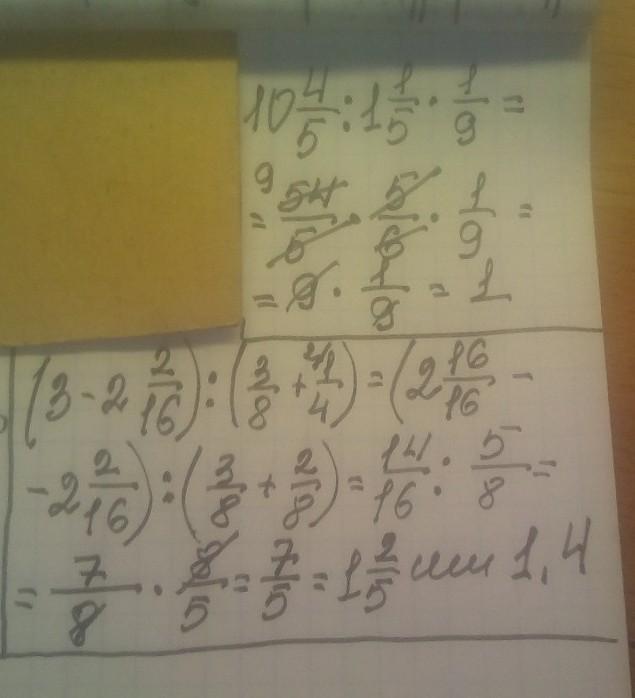 10 4/5 : 1 1/5 · 1/9 =
= 54/5 · 5/6 · 1/9 =
= 9 · 1/9 = 1
(3 - 2 2/16) : (3/8 + 1/4) = (2 16/16 -
- 2 2/16) : (3/8 + 2/8) = 14/16 : 5/8 =
= 7/8 · 8/5 = 7/5 = 1 2/5 или 1,4